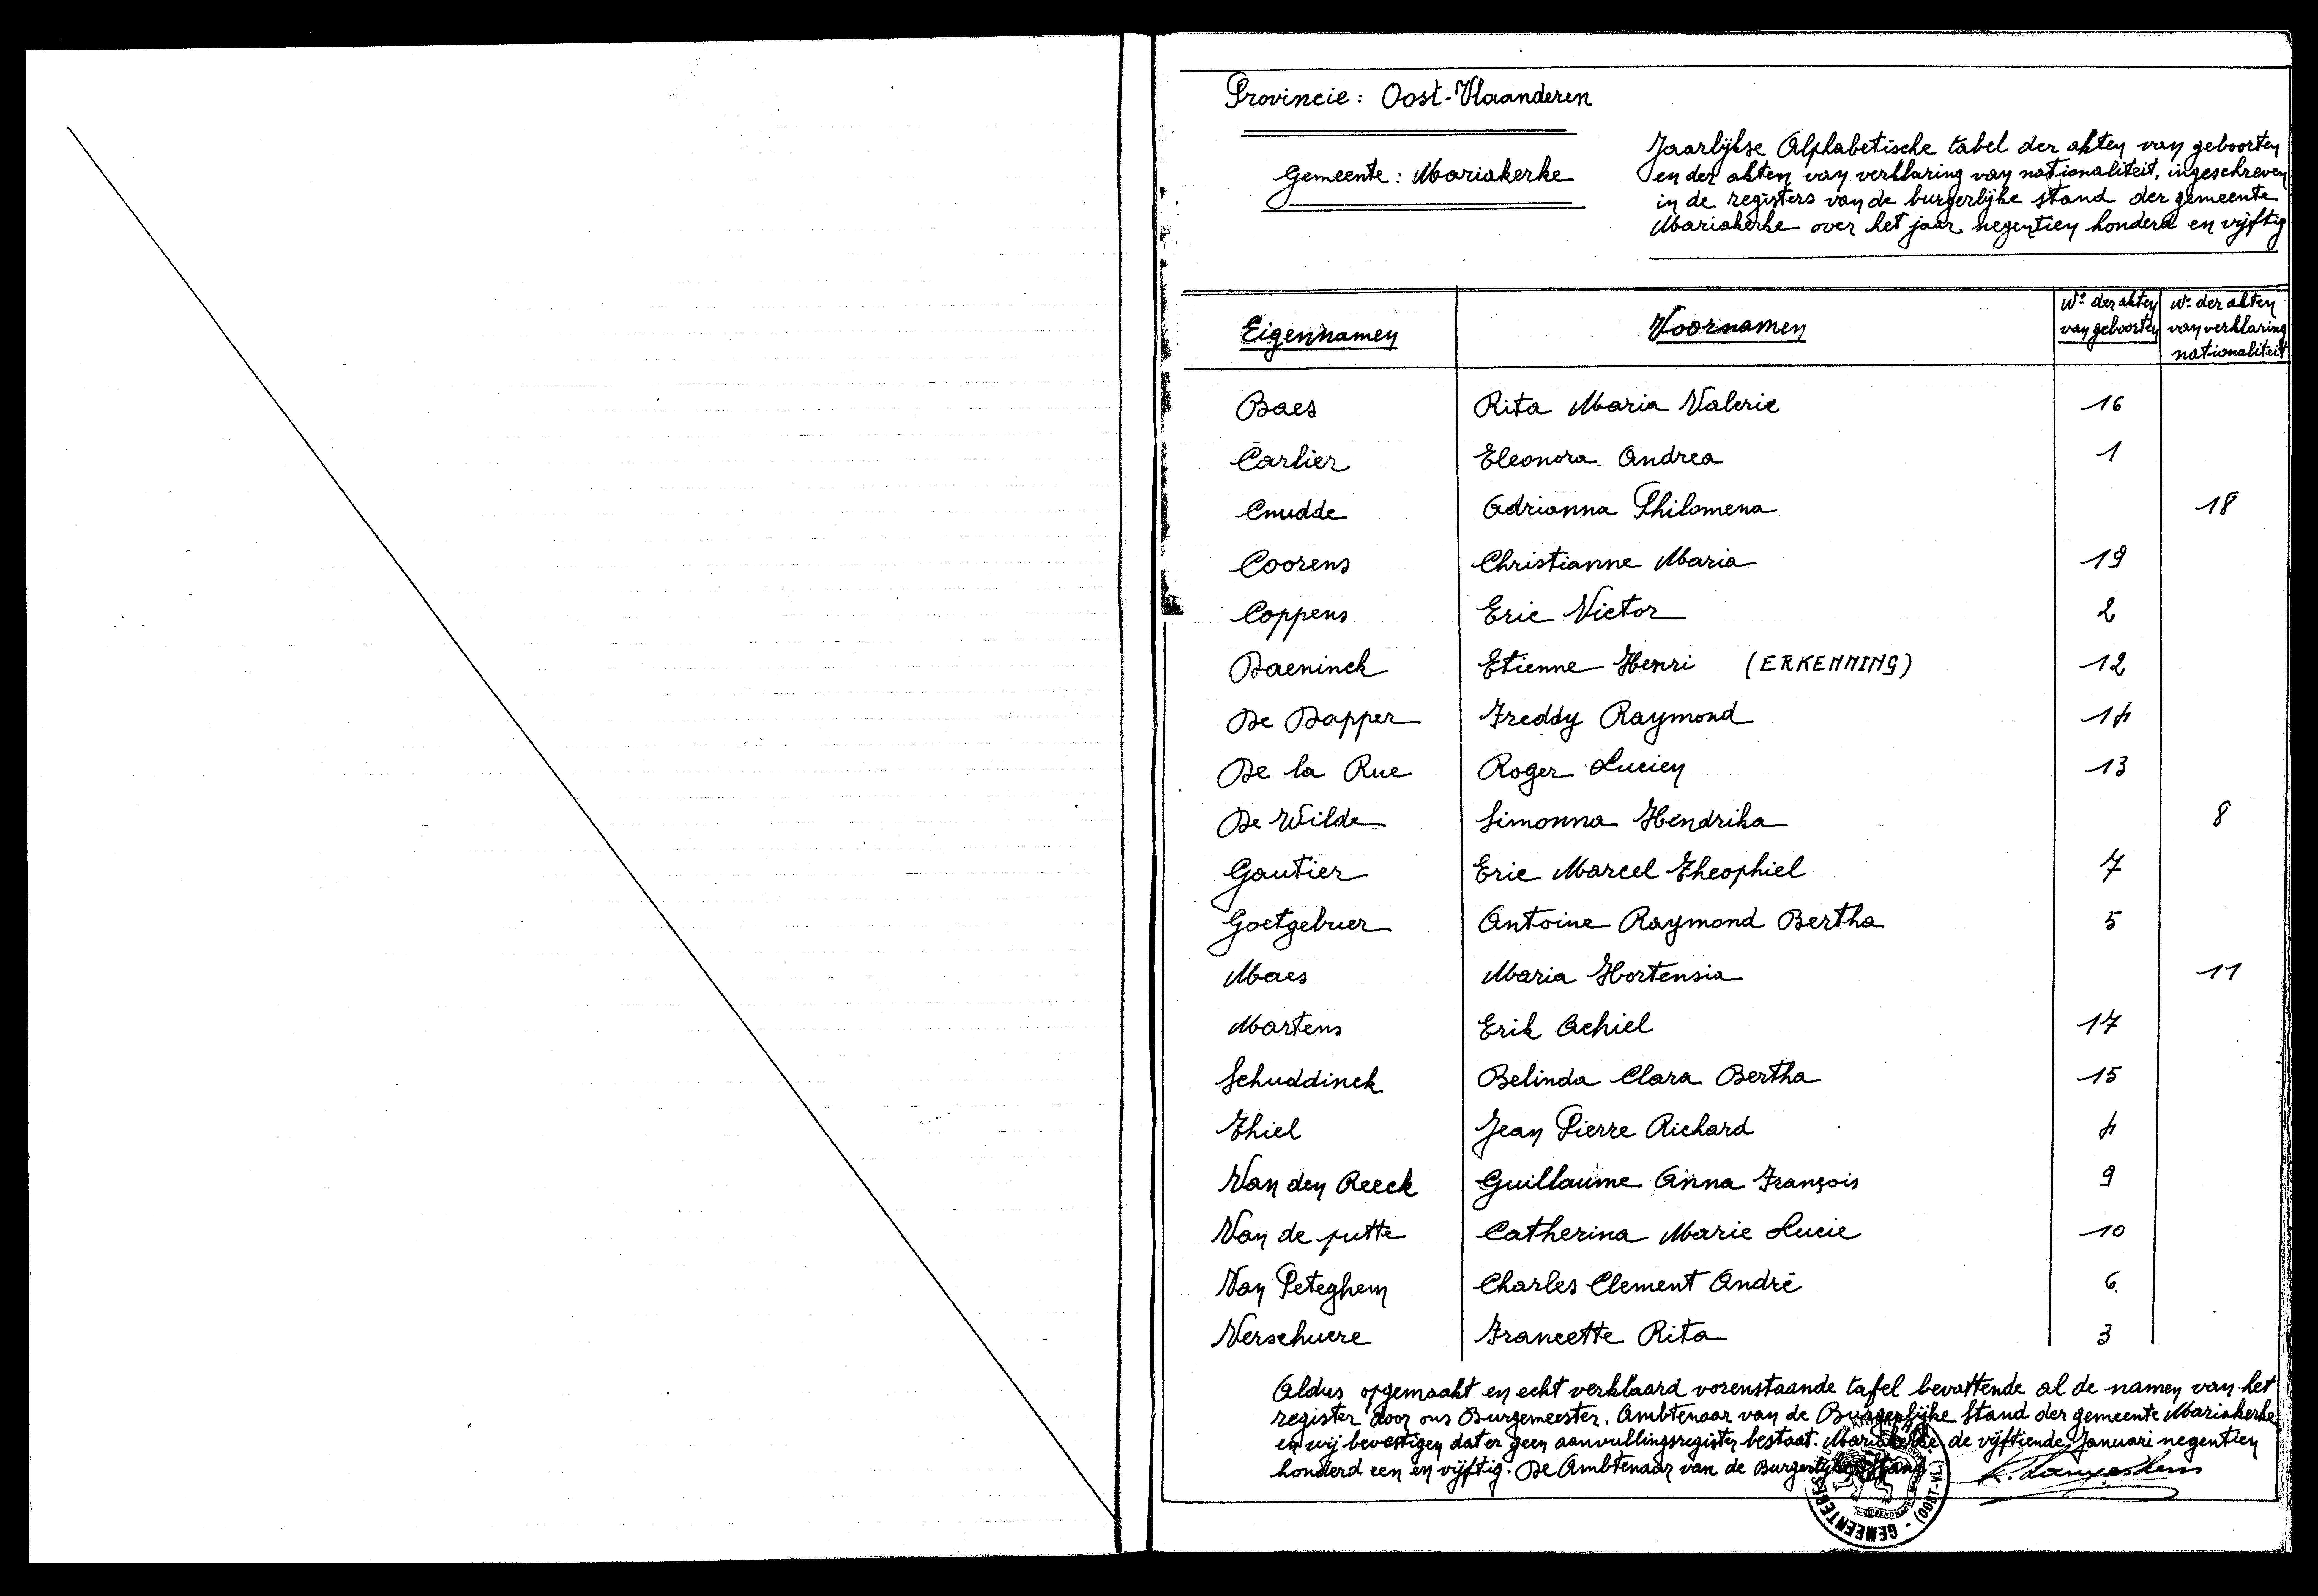 Provincie: Oost-Vlaanderen
Gemeente: Mariakerke
Jaarlijkse Alphabetische tabel der akten van geboorten
en der akten van verklaring van nationaliteit, ingeschreven
in de registers van de burgerlijke stand der gemeente
Mariakerke over het jaar negentien honderd en vijftig
Eigennamen Voornamen Nº der akten van geboorten Nº der akten van verklaring nationaliteit
Baes Rita Maria Valerie 16
Carlier Eleonora Andrea 1
Cnudde Adrianna Philomena 18
Coorens Christianne Maria 19
Coppens Eric Victor 2
Daeninck Etienne Henri (ERKENNING) 12
De Dapper Freddy Raymond 14
De la Rue Roger Lucien 13
De Wilde Simonna Hendrika 8
Gautier Eric Marcel Theophiel 7
Goetgebuer Antoine Raymond Bertha 5
Maes Maria Hortensia 11
Martens Erik Achiel 17
Schuddinck Belinda Clara Bertha 15
Thiel Jean Pierre Richard 4
Van den Reeck Guillaume Anna François 9
Van de putte Catherina Marie Lucie 10
Van Peteghem Charles Clement André 6
Verschuere Francette Rita 3
Aldus opgemaakt en echt verklaard vorenstaande tafel bevattende al de namen van het
register door ons Burgemeester. Ambtenaar van de Burgerlijke Stand der gemeente Mariakerke
en wij bevestigen dat er geen aanvullingsregister bestaat. Mariakerke de vijftiende Januari negentien
honderd een en vijftig. De Ambtenaar van de Burgerlijke Stand
GEMEENTEBES (OOST-VL.)